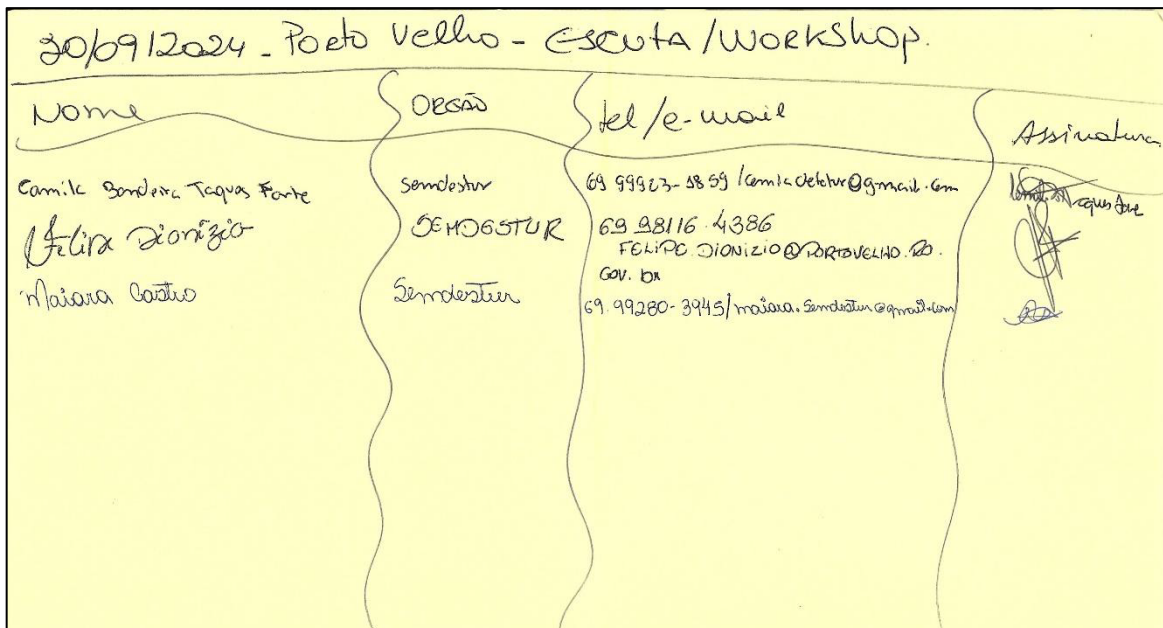 30/09/2024 - Porto Velho - ESCUTA/WORKSHOP.
Nome ORGÃO tel/e-mail Assinatura
Camila Bandeira Taques Forte Semdestur 69 99923-1859 /
Felipe Dionízio SEMDESTUR 69 98116.4386
FELIPE.DIONIZIO@PORTOVELHO.RO.
GOV.br
Maiara Castro Semdestur 69.99280-3945/maiara.semdestur@gmail.com